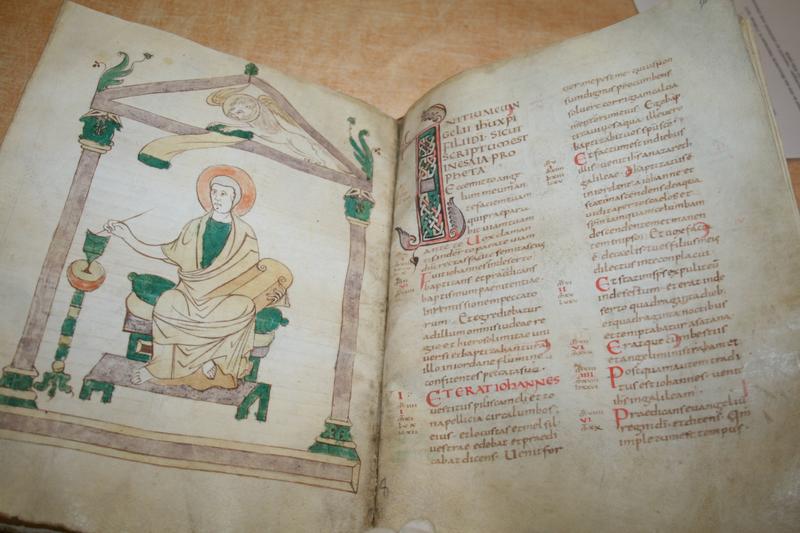 INITIUM EUAN
GELII IHU XPI
FILII DI · SICUT
SCRIPTUM EST
IN ESAIA PRO
PHETA
Ecce mitto ang
lum meum an
te faciem tuam
qui praepara
bit
ante te · Uox claman
tis in deserto parate uiam
dni rectas facite semitas eius
Fuit iohannes in deserto
baptizans et praedicans
baptismum paenitentiae
in remissionem peccato
rum · Et egrediebatur
ad illum omnis iudeae re
gio et hierosolimitae uni
uersi et baptizabantur ab
illo in iordane flumine
confitentes peccata sua ·
ET ERAT IOHANNES
uestitus pilis cameli et zo
na pellicia circa lumbos
eius · et locustas et mel sil
uestrae edebat et praedi
cabat dicens · Uenit for
tior me post me · cuius non
sum dignus procumbens
soluere corrigiam calcia
mentorum eius · Ego bap
tizaui uos aqua · ille uero
baptizabit uos spu sco ·
Et factum est in diebus
illis uenit ihs a nazareth
galileae · et baptizatus e
in iordane a iohanne · et
statim ascendens de aqua
uidit apertos caelos et
spm tamquam columbam
descendentem et manen
tem in ipso · Et uox facta
e de caelis tu es filius meus
dilectus in te conplacui
Et statim sps expulit eum
in desertum · et erat in de
serto quadraginta dieb
et quadraginta noctibus
et temptabatur a satana ·
Eratque cum bestiis
et angeli ministrabant ei
Postquam autem tradi
tus est iohannes · uenit
ihs in galileam
Praedicans euangeliu
regni di · et dicens · Qm
impletum est tempus ·